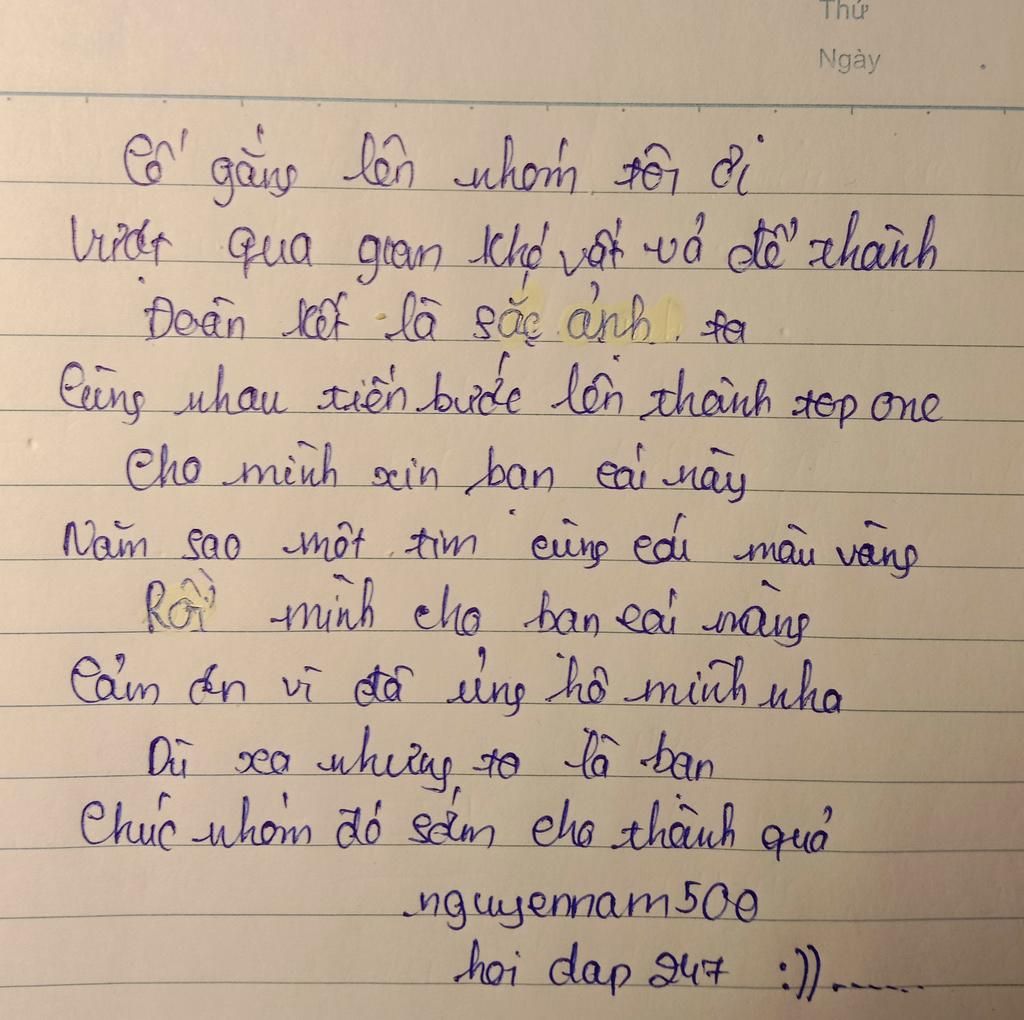 Thứ
Ngày
Cố gắng lên nhóm tôi ơi
Vượt qua gian khó vất vả để thành
Đoàn kết là sắc ảnh ta
Cùng nhau tiến bước lên thành top one
Cho mình xin bạn cái này
Năm sao một tim cùng cái màu vàng
Rồi mình cho bạn cái nàng
Cảm ơn vì đã ủng hộ mình nha
Dù xa nhưng ta là bạn
Chúc nhóm đó sớm cho thành quả
nguyennam500
hoi dap 247 :)).......